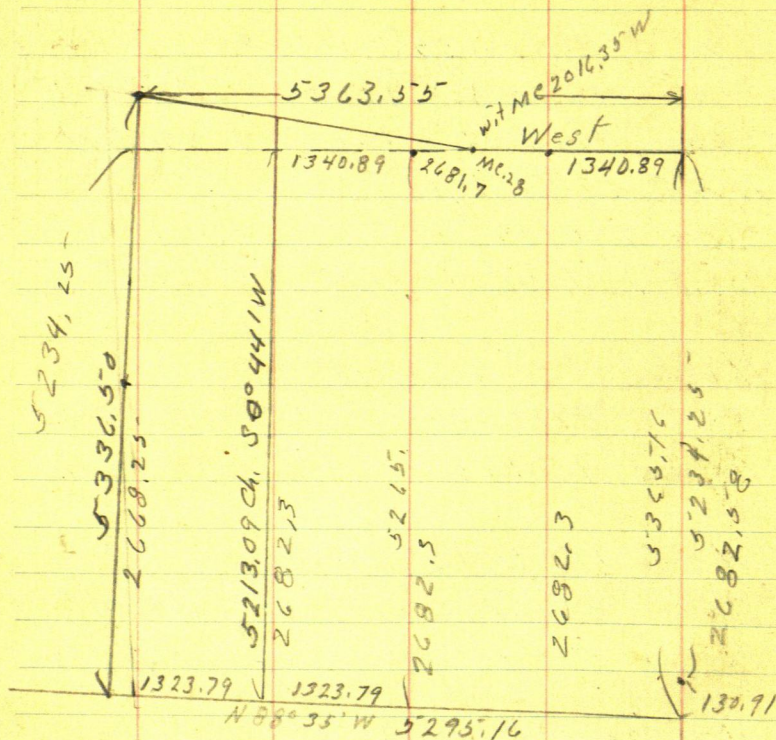 5363.55
wit MC 2016.35 W
West
1340.89
2681.7
MC.28
1340.89
5234,25
5336.50
2668.25
5213.09 Ch. S 0° 44' W
2682.3
5265.
2682.5
2682.3
5365.16
5234.25
2682.58
1323.79
1323.79
130.91
N 88° 35' W 5295.16